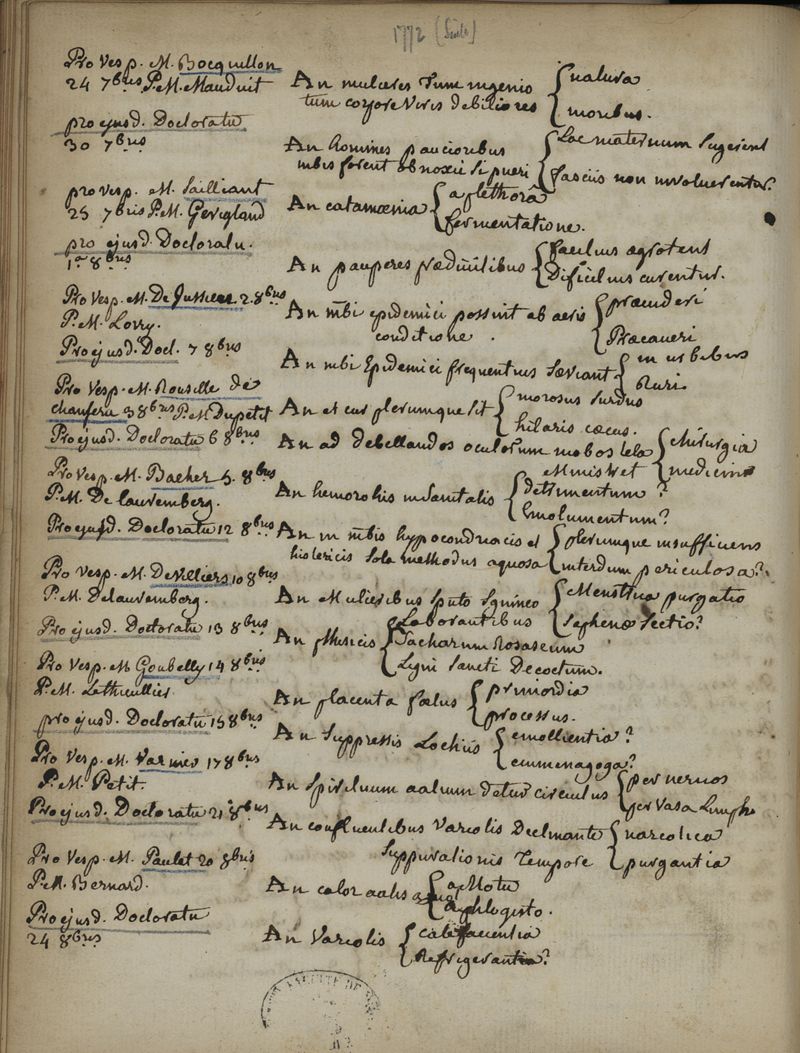 1772 (Suite)
Pro Vesp. M. Bocquillon
24 7bris P.M. Mauduit An mulieres tum ingenio { natura
tum corpore viris debiliores { moribus.
pro ejusd. Doctoratu
30 7bris An homines paucioribus { Lac maternum Sugerent
mbis forent obnoxii si pueri { fasciis non involverentur?
pro vesp. M. Sailliant
25 7bris P.M. Gevigland An catamœnia { a plethorâ
{ fermentatione.
pro ejusd. Doctoratu.
1a 8bris An pauperes prædivitibus { facilius ægrotent
{ Dificilius curentur.
Pro Vesp. M. De Jussieu 2. 8bris An mbi epidemici possint ab aeris { præcuderi
P.M. Lorry. conditione. { Præcaveri
Pro ejusd. Doct. 7 8bris An mbi Epidemici frequentius sæviant { in urbibus
{ Ruri
Pro Vesp. M. Rousille de
chamseru 3 8bris P.M. Dupetit An et cur plerumque sit { morosus surdus
{ hilaris cæcus.
Pro ejusd. Doctoratu 6 8bris An ad debellandos oculorum mobos tela { chirurgia
Ministret { medicina
Pro Vesp. M. Bacher 5. 8bris
P.M. De lauremberg. An hemorohis in Sanitatis { detrimentum?
{ Emolumentum?
Pro ejusd. Doctoratu 12 8bris An in mbis hypocondriacis et { plerumque insufficiens
histericis sola methodus aquosa { interdum periculosa?
Pro Vesp. M. De Villiers 10 8bris
P.M. Delauremberg. An Mulieribus sputo sanguineo { Menstrua purgatio
Laborantibus { Saphenæ Sectio?
Pro ejusd. Doctoratu 13 8bris An phtisicis { Sacharum Rosaseum
{ Ligni Sancti Decoctum.
Pro Vesp. M Goubelly 14 8bris
P.M. Lethieullier An placenta fœtus { primordia
{ processus.
pro ejusd. Doctoratu 15 8bris An suppressis Lochiis { emollientia?
{ emmenagoga?
Pro Vesp. M. Varnier 17 8bris
P.M. Petit. An Spirituum aalium detur circulus { per nervos
{ per Vasa Lympha
Pro ejusd. Doctoratu 21 8bris An confluentibus Variolis Declinante { narcotica
Suppurationis Tempore { purgantia
Pro Vesp. M. Paulet 20 8bris
P.M. Bernard. An calor aalis { a Motu
{ a phlogisto.
Pro ejusd. Doctoratu
24 8bris An Variolis { calefacientia
{ Refrigerantia?